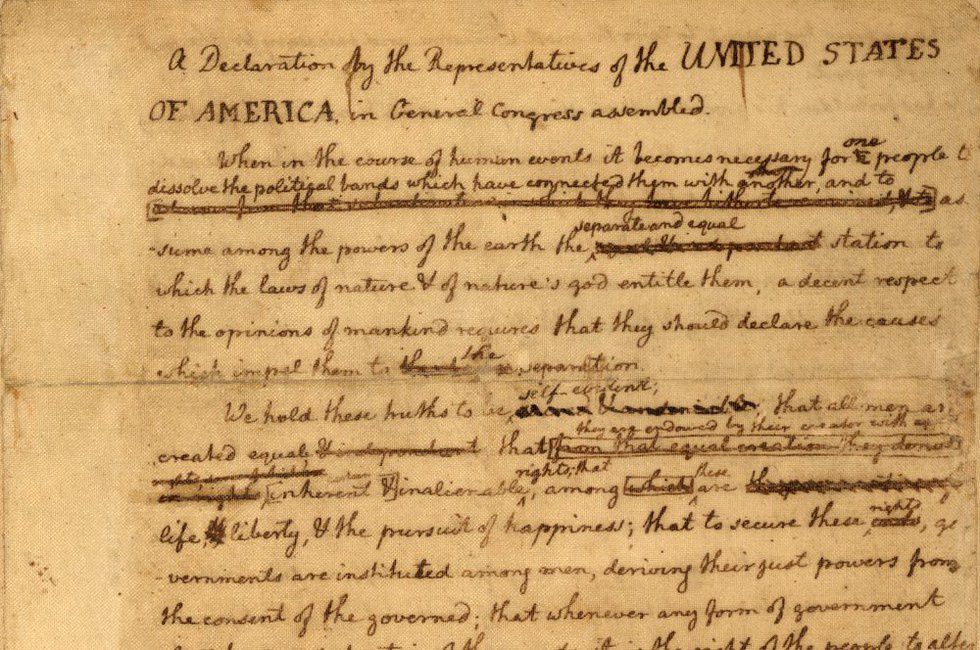 A Declaration by the Representatives of the UNITED STATES
OF AMERICA, in General Congress assembled.
When in the course of human events it becomes necessary for one people to
dissolve the political bands which have connected them with another, and to
as
-sume among the powers of the earth the separate and equal station to
which the laws of nature & of nature's god entitle them, a decent respect
to the opinions of mankind requires that they should declare the causes
which impel them to the separation.
We hold these truths to be self-evident; that all men are
they are endowed by their creator with
created equal & independant that from that equal creation they derive
rights; that
in rights inherent & inalienable, among which these are
life, liberty, & the pursuit of happiness; that to secure these rights, go
-vernments are instituted among men, deriving their just powers from
the consent of the governed; that whenever any form of government
it is the right of the people to alter